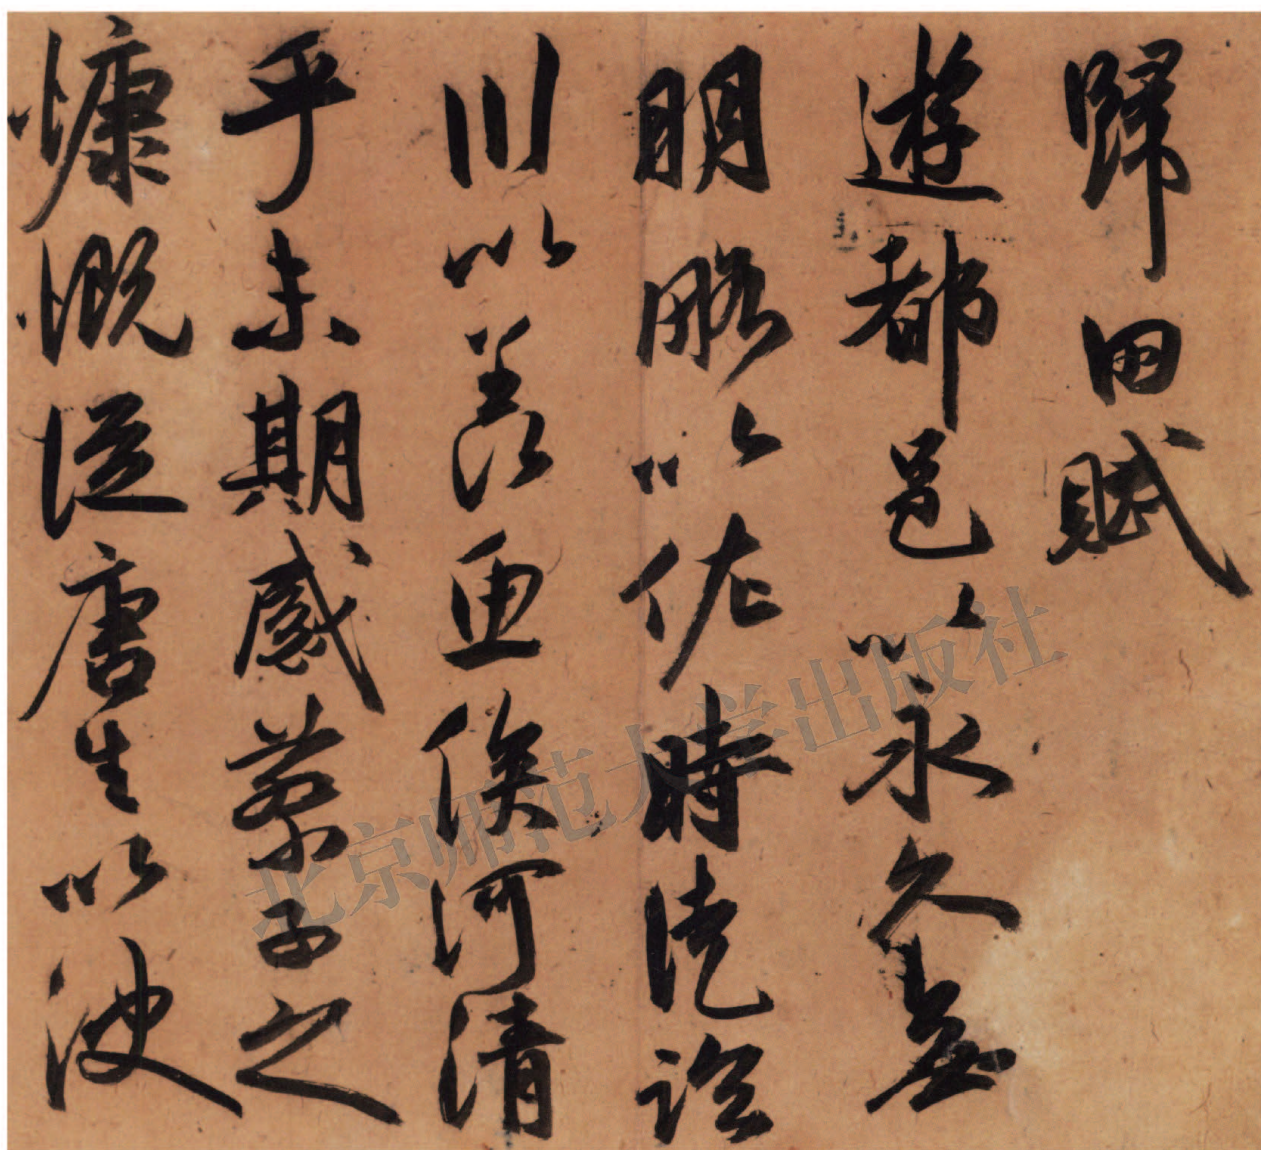 歸田賦
遊都邑以永久無
明略以佐時徒臨
川以羨魚俟河清
乎未期感蔡子之
慷慨從唐生以決
北京师范大学出版社